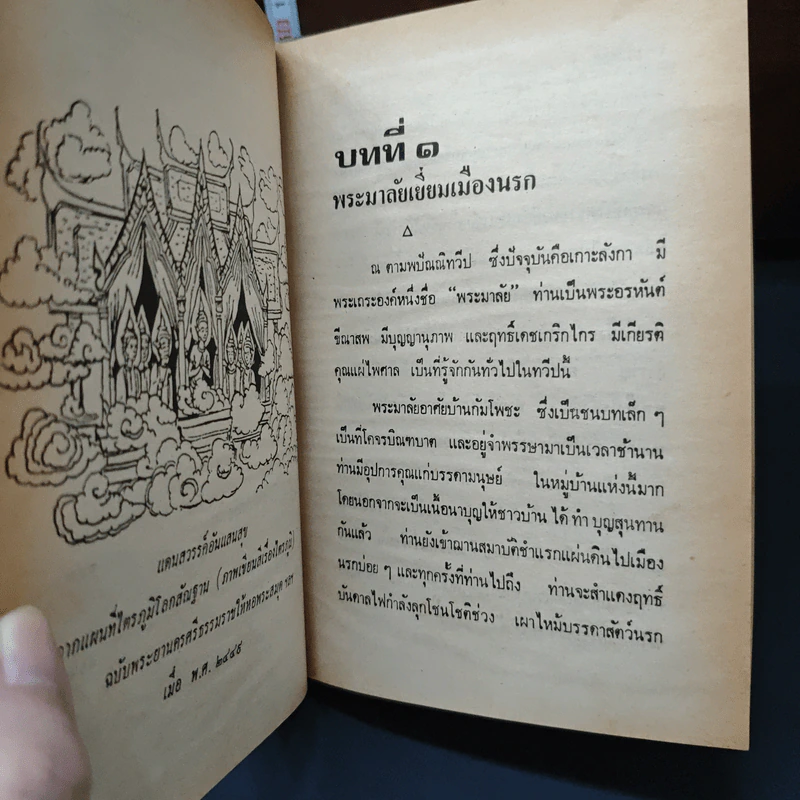 แดนสวรรค์อันแสนสุข
จากแผนที่ไตรภูมิโลกสัณฐาน (ภาพเขียนสีเรื่องไตรภูมิ)
ฉบับพระยานครศรีธรรมราชให้หอพระสมุด ฯลฯ
เมื่อ พ.ศ. ๒๔๔๙
บทที่ ๑
พระมาลัยเยี่ยมเมืองนรก
ณ ตามพปัณณิทวีป ซึ่งปัจจุบันคือเกาะลังกา มี
พระเถระองค์หนึ่งชื่อ “พระมาลัย” ท่านเป็นพระอรหันต์
ขีณาสพ มีบุญญานุภาพ และฤทธิ์เดชเกริกไกร มีเกียรติ
คุณแผ่ไพศาล เป็นที่รู้จักกันทั่วไปในทวีปนี้
พระมาลัยอาศัยบ้านกัมโพชะ ซึ่งเป็นชนบทเล็ก ๆ
เป็นที่โคจรบิณฑบาต และอยู่จำพรรษามาเป็นเวลาช้านาน
ท่านมีอุปการคุณแก่บรรดามนุษย์ ในหมู่บ้านแห่งนี้มาก
โดยนอกจากจะเป็นเนื้อนาบุญให้ชาวบ้าน ได้ ทำ บุญสุนทาน
กันแล้ว ท่านยังเข้าฌานสมาบัติชำแรกแผ่นดินไปเมือง
นรกบ่อย ๆ และทุกครั้งที่ท่านไปถึง ท่านจะสำแดงฤทธิ์
บันดาลไฟกำลังลุกโชนโชติช่วง เผาไหม้บรรดาสัตว์นรก